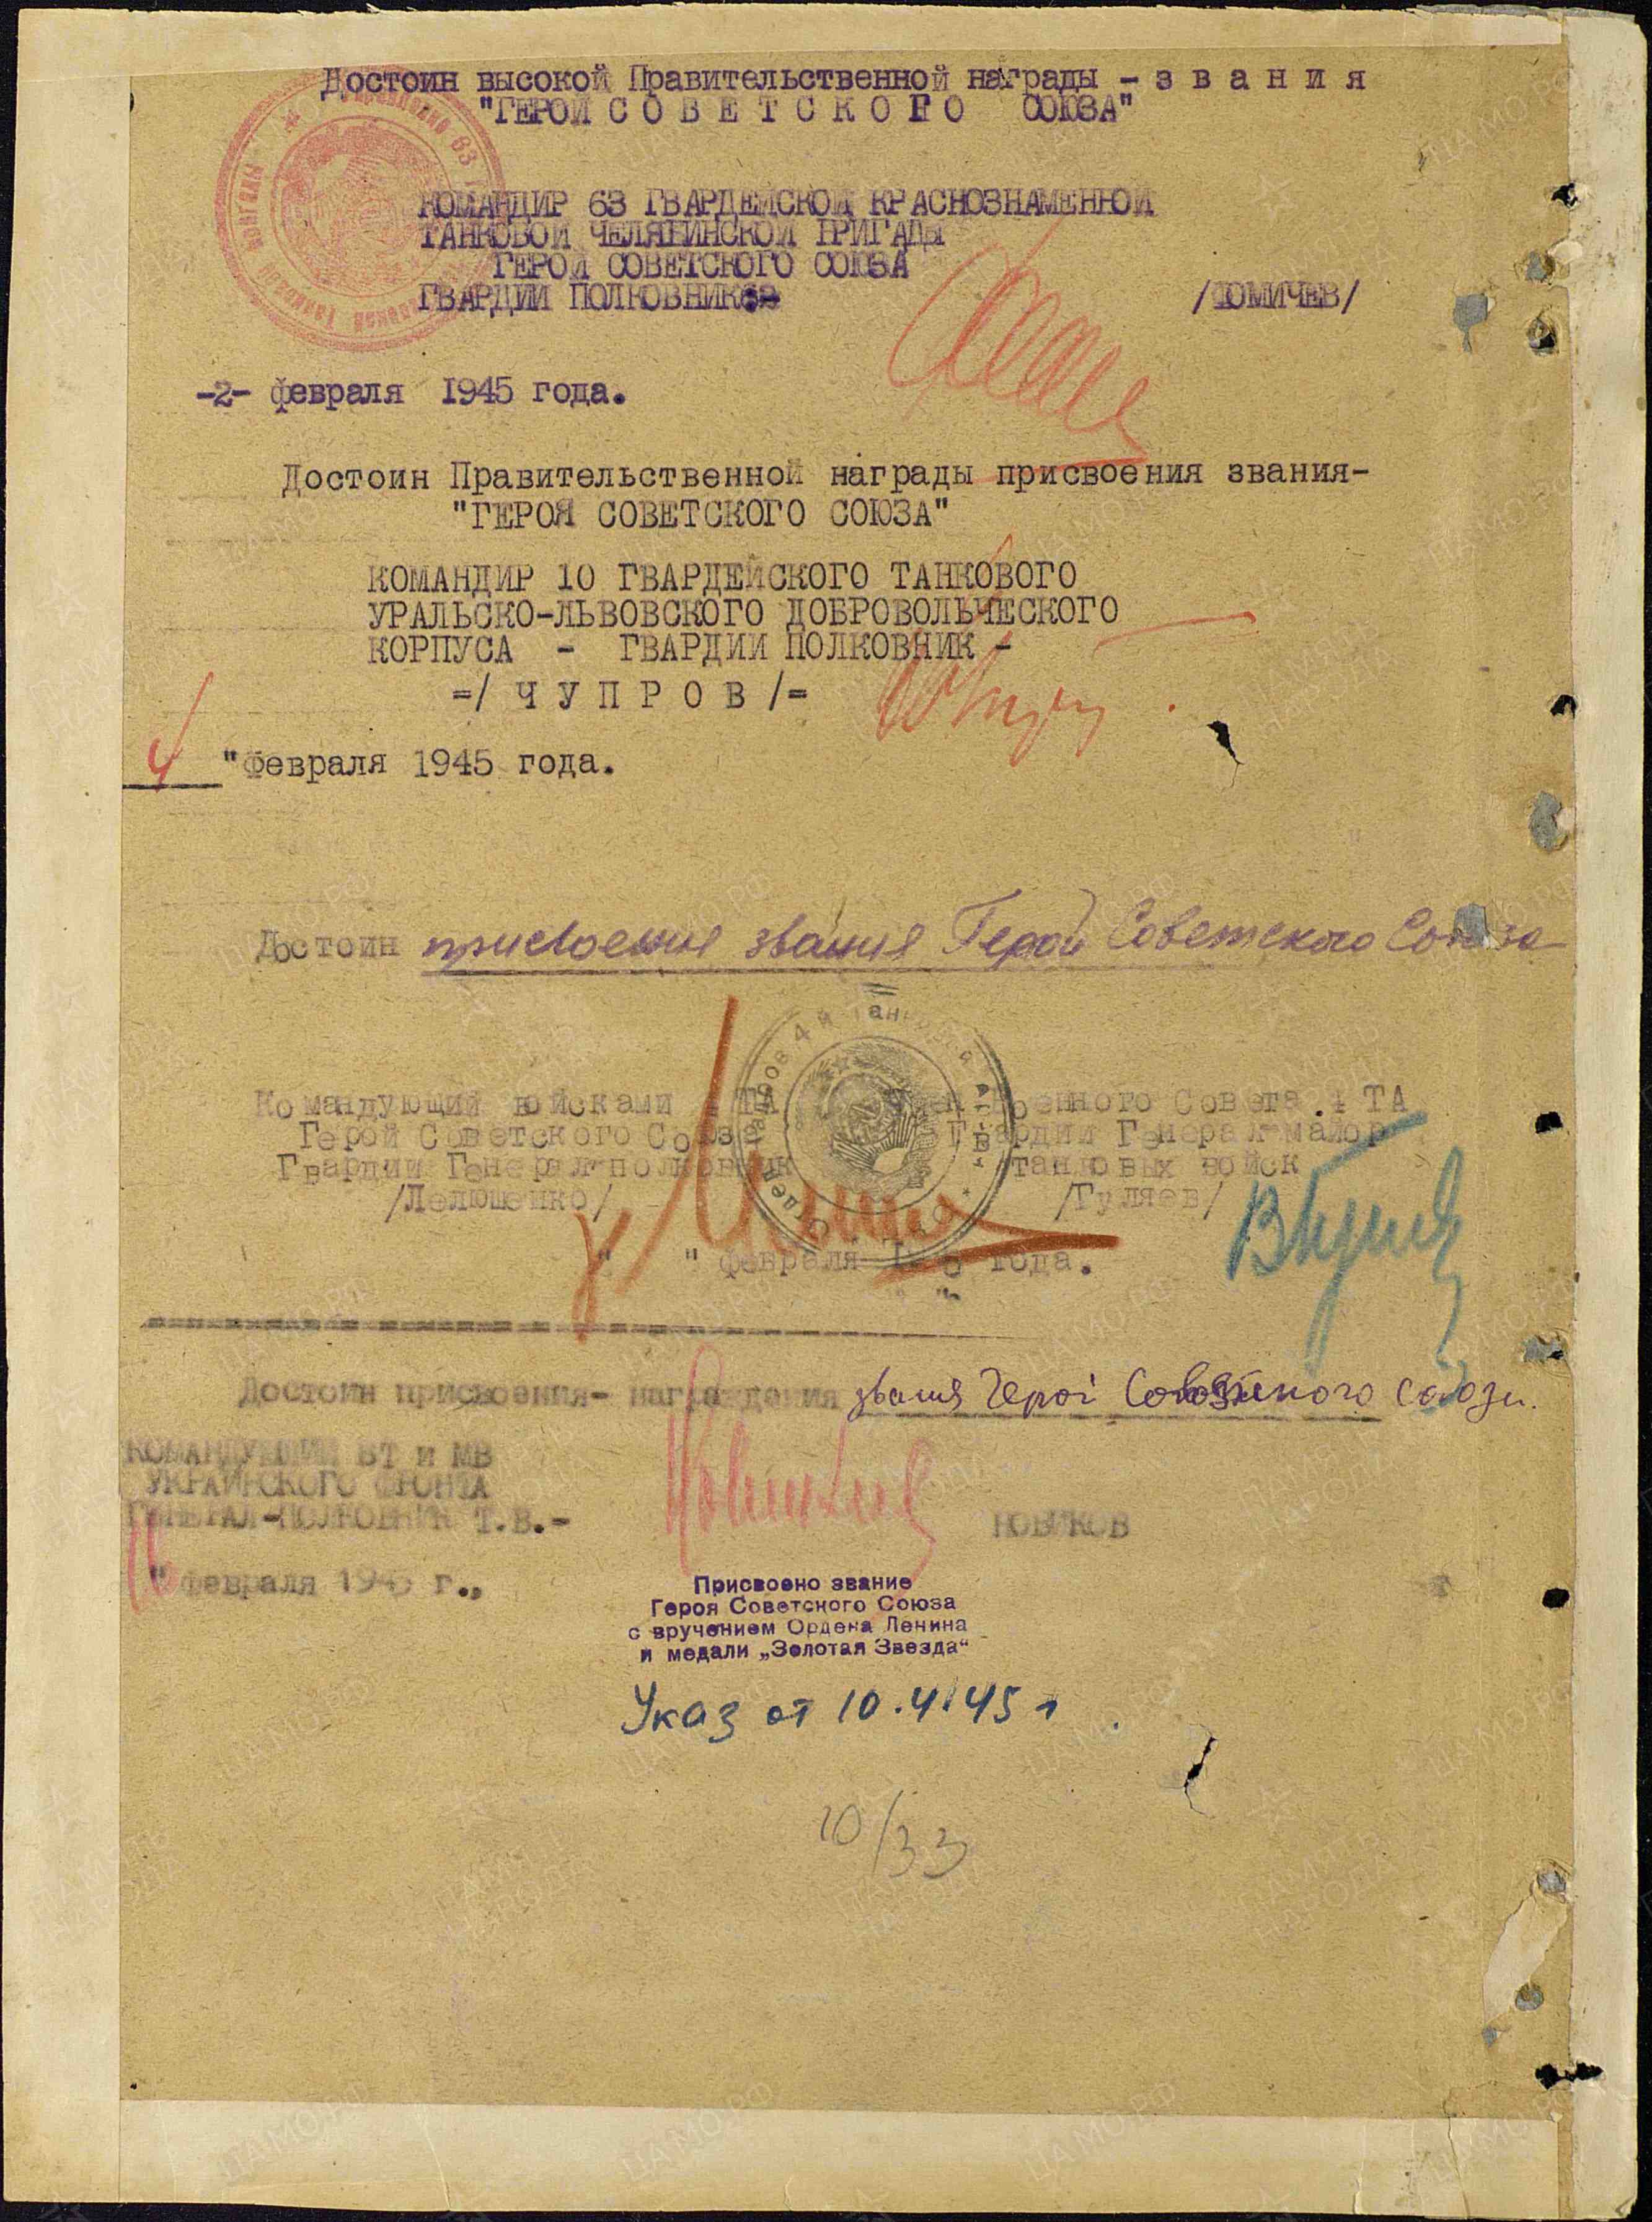 Достоин высокой Правительственной награды - з в а н и я
"ГЕРОЙ С О В Е Т С К О Г О СОЮЗА"
КОМАНДИР 63 ГВАРДЕЙСКОЙ КРАСНОЗНАМЕННОЙ
ТАНКОВОЙ ЧЕЛЯБИНСКОЙ БРИГАДЫ
ГЕРОЙ СОВЕТСКОГО СОЮЗА
ГВАРДИИ ПОЛКОВНИК
/ФОМИЧЕВ/
-2- февраля 1945 года.
Достоин Правительственной награды присвоения звания-
"ГЕРОЯ СОВЕТСКОГО СОЮЗА"
КОМАНДИР 10 ГВАРДЕЙСКОГО ТАНКОВОГО
УРАЛЬСКО-ЛЬВОВСКОГО ДОБРОВОЛЬЧЕСКОГО
КОРПУСА - ГВАРДИИ ПОЛКОВНИК -
=/ Ч У П Р О В /=
4 "февраля 1945 года.
Достоин присвоения звания Герой Советского Союза
Командующий войсками 4 ТА
Герой Советского Союза
Гвардии Генерал-полковник
/Лелюшенко/
Член Военного Совета 4 ТА
Гвардии Генерал-майор
танковых войск
/Гуляев/
" " февраля 1945 года.
Достоин присвоения- награждения звания Герой Советского Союза.
КОМАНДУЮЩИЙ БТ и МВ
УКРАИНСКОГО ФРОНТА
ГЕНЕРАЛ-ПОЛКОВНИК Т.В.-
Новиков
НОВИКОВ
" февраля 1945 г.,
Присвоено звание
Героя Советского Союза
с вручением Ордена Ленина
и медали „Золотая Звезда“
Указ от 10.4.45 г
10/33